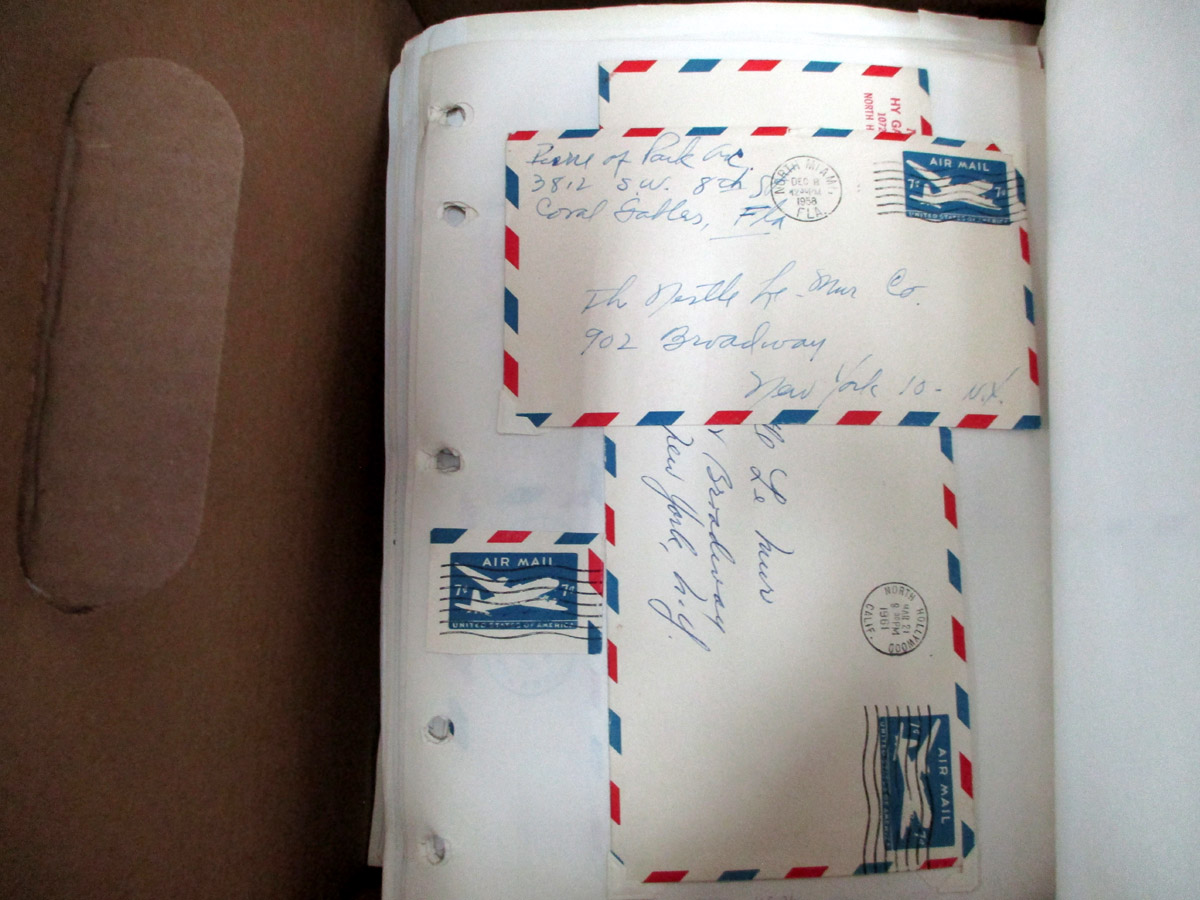 HY GA
1072
NORTH H
Pierre of Park Ave.
3812 S.W. 8th St
Coral Gables, Fla
NORTH MIAMI,
DEC
1958
FLA.
AIR MAIL
7¢ 7¢
UNITED STATES OF AMERICA
The Nestle Le-Mur Co.
902 Broadway
New York 10- N.Y.
Le Mur
Broadway
New York, N.Y.
AIR MAIL
7¢ 7¢
UNITED STATES OF AMERICA
NORTH HOLLYWOOD
MAR 21
PM
1961
CALIF.
AIR MAIL
7¢ 7¢
UNITED STATES OF AMERICA